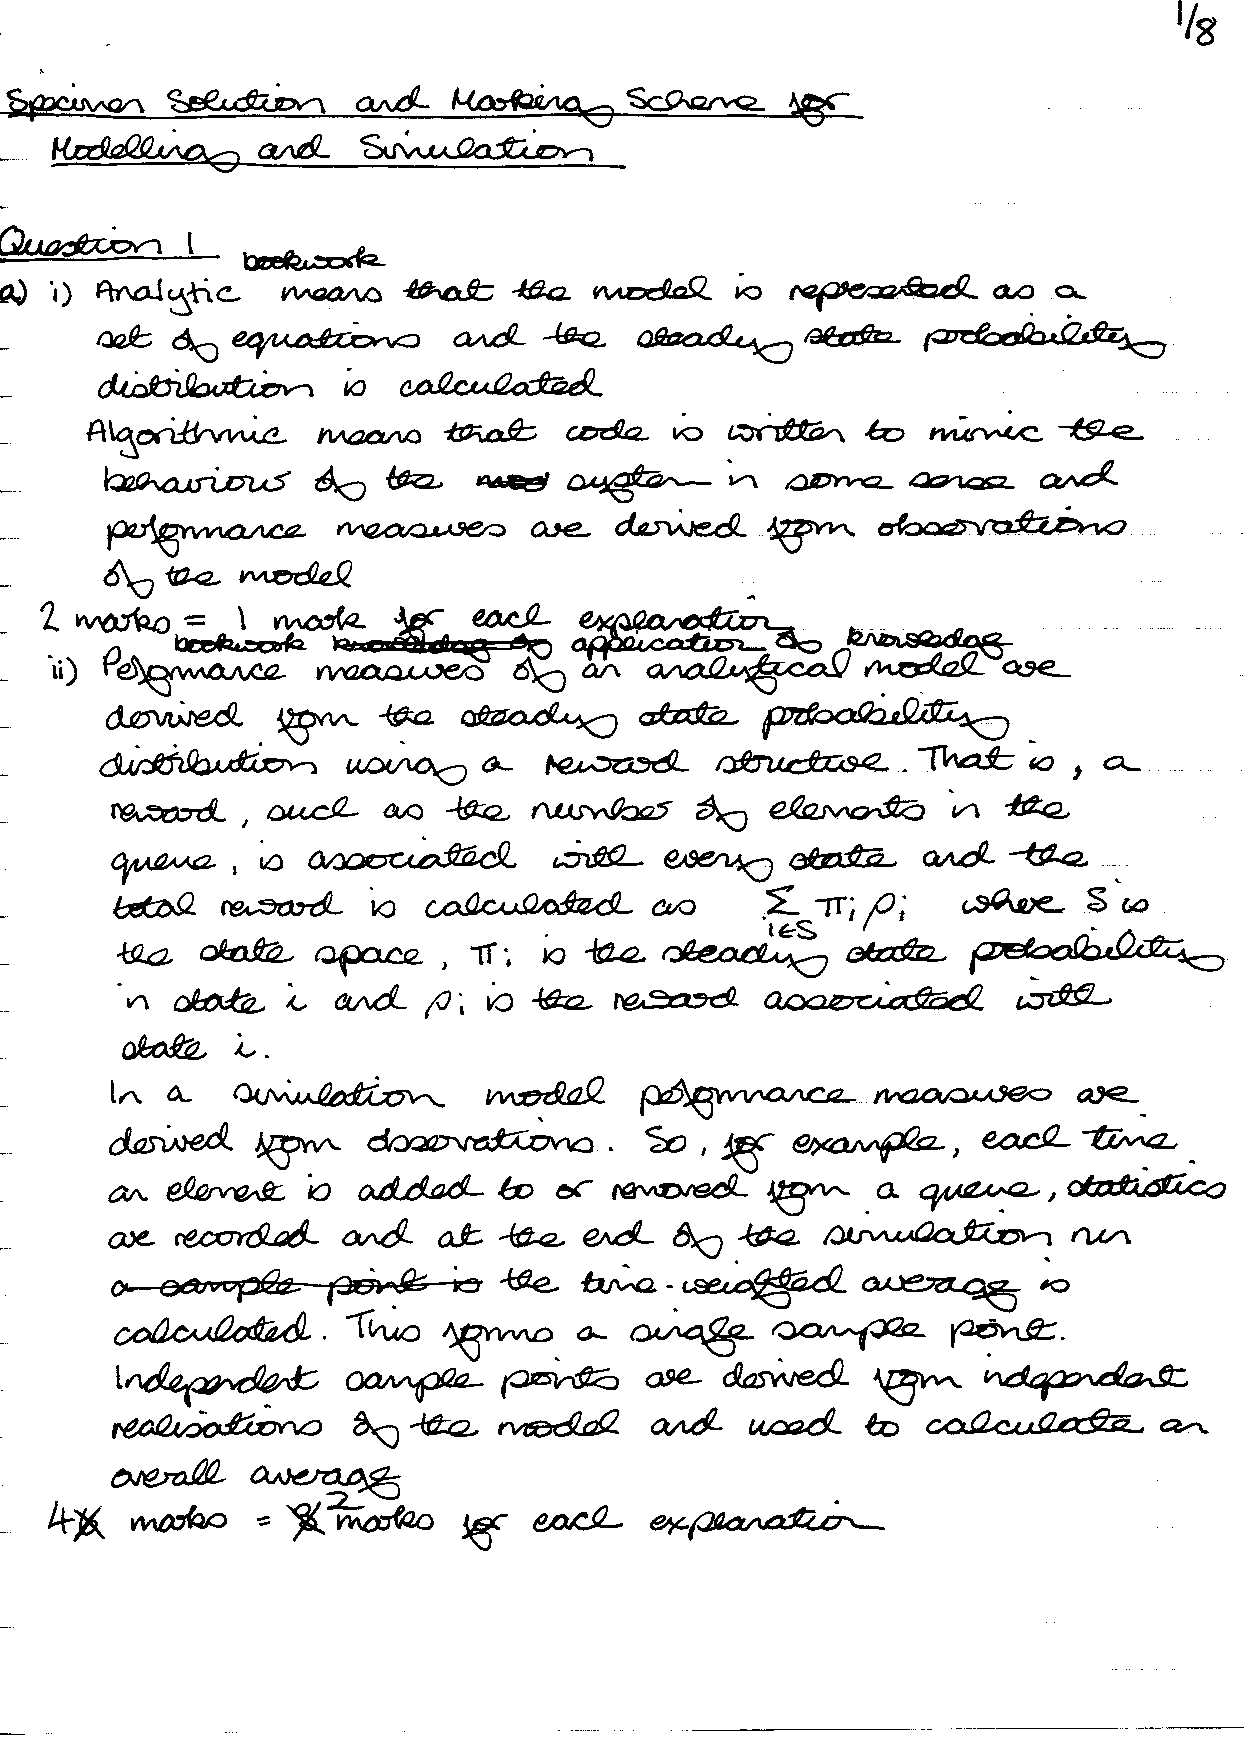 1/8
Specimen Solution and Marking Scheme for
Modelling and Simulation
Question 1
bookwork
a) i) Analytic means that the model is represented as a
set of equations and the steady state probability
distribution is calculated
Algorithmic means that code is written to mimic the
behaviour of the system in some sense and
performance measures are derived from observations
of the model
2 marks = 1 mark for each explanation
bookwork application of knowledge
ii) Performance measures of an analytical model are
derived from the steady state probability
distribution using a reward structure. That is, a
reward, such as the number of elements in the
queue, is associated with every state and the
total reward is calculated as Σ πi ρi where S is
i∈S
the state space, πi is the steady state probability
in state i and ρi is the reward associated with
state i.
In a simulation model performance measures are
derived from observations. So, for example, each time
an element is added to or removed from a queue, statistics
are recorded and at the end of the simulation run
a sample point is the time-weighted average is
calculated. This forms a single sample point.
Independent sample points are derived from independent
realisations of the model and used to calculate an
overall average
4 marks = 2 marks for each explanation